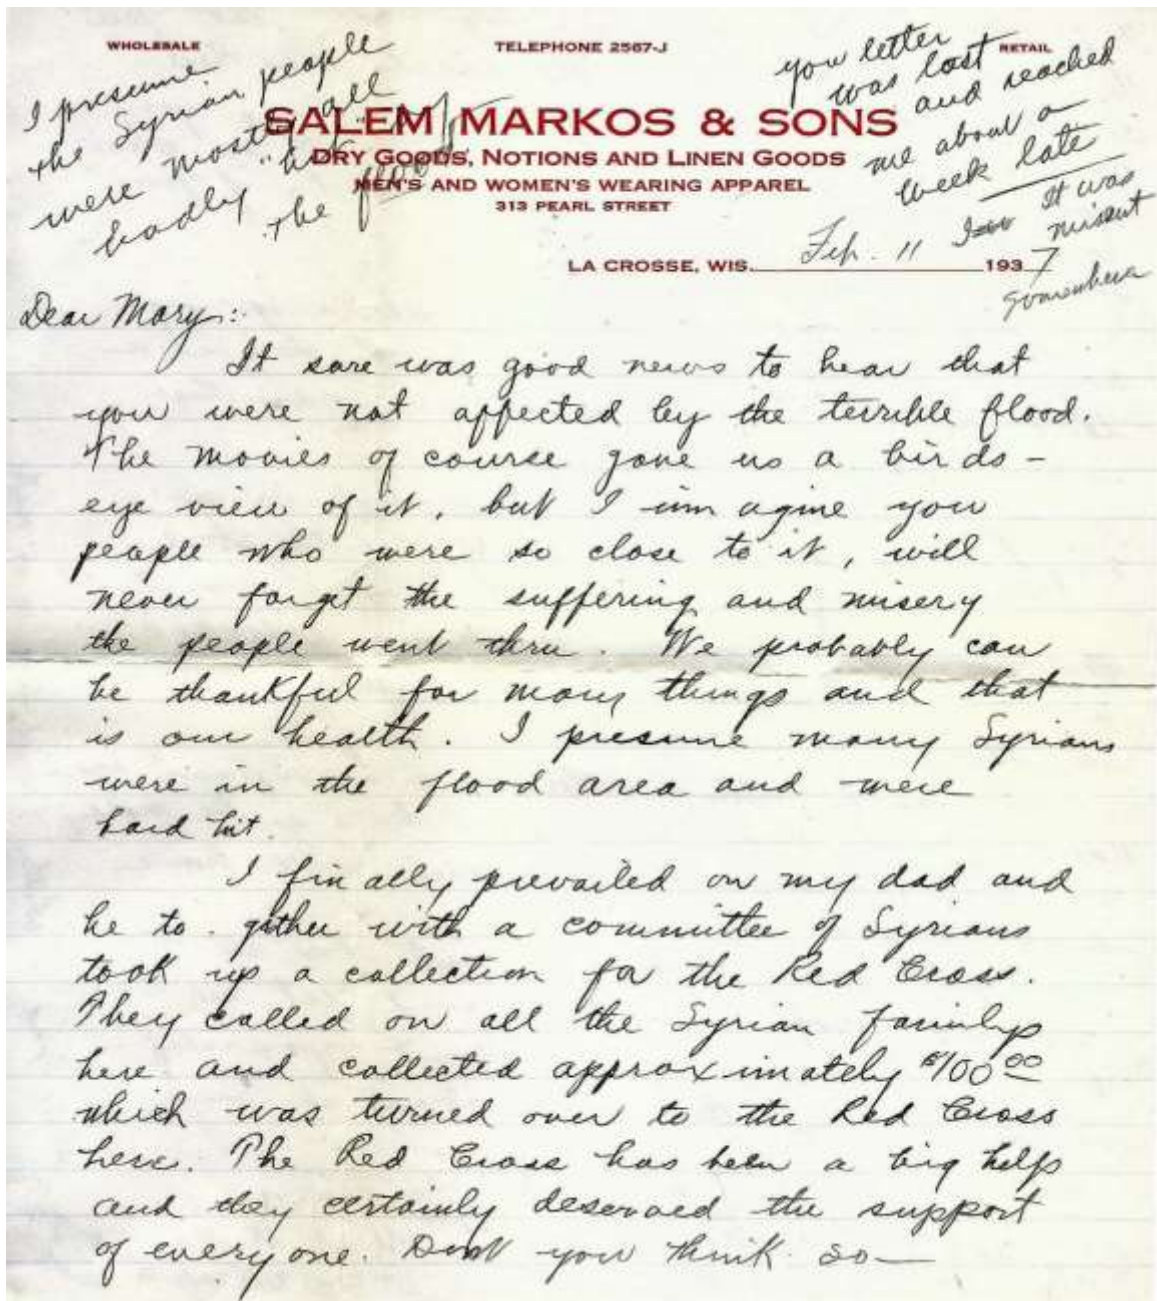 WHOLESALE
TELEPHONE 2567-J
RETAIL
I presume
the Syrian people
were mostly all
badly "hit" by
the flood
you letter
was lost
and reached
me about a
week late
It was
missent
somewhere
SALEM MARKOS & SONS
DRY GOODS, NOTIONS AND LINEN GOODS
MEN'S AND WOMEN'S WEARING APPAREL
313 PEARL STREET
LA CROSSE, WIS. Feb. 11 1937
Dear Mary:
It sure was good news to hear that
you were not affected by the terrible flood.
The movies of course gave us a birds-
eye view of it, but I imagine you
people who were so close to it, will
never forget the suffering and misery
the people went thru. We probably can
be thankful for many things and that
is our health. I presume many Syrians
were in the flood area and were
hard hit.
I finally prevailed on my dad and
he to.gether with a committee of Syrians
took up a collection for the Red Cross.
They called on all the Syrian familys
here and collected approximately $100.00
which was turned over to the Red Cross
here. The Red Cross has been a big help
and they certainly deserved the support
of everyone. Dont you think so—